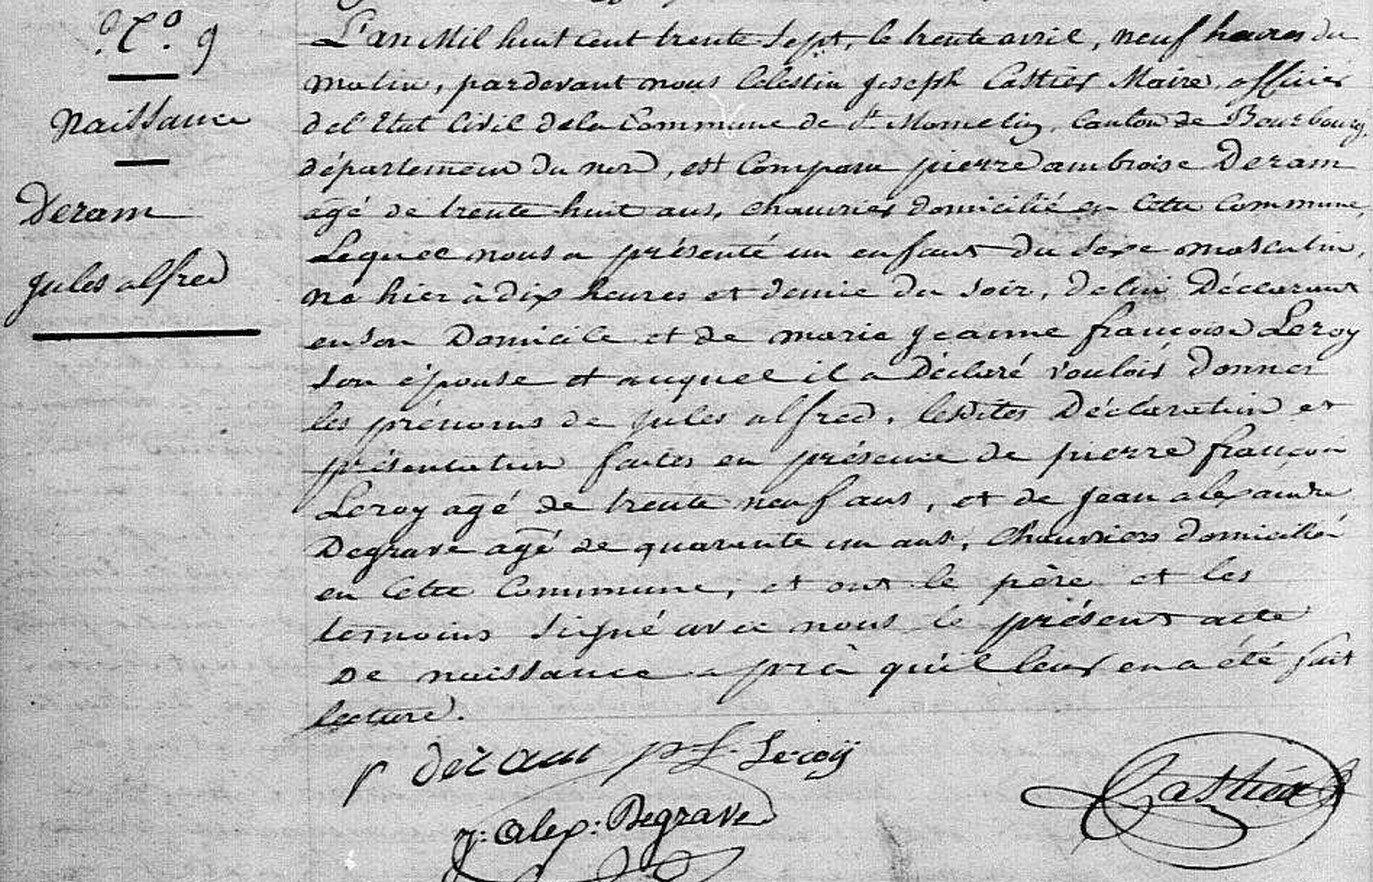 N.º 9
naissance
Deram
jules alfred
L'an Mil huit cent trente sept, le trente avril, neuf heures du
matin, pardevant nous Célestin joseph Castier Maire, officier
de l'Etat Civil de la Commune de St Momelin, Canton de Bourbourg,
département du nord, est Comparu pierre ambroise Deram
agé de trente huit ans, chauvrier domicilié en Cette Commune,
Lequel nous a présenté un enfant du Sexe masculin,
né hier à dix heures et demie du soir, de lui Déclarant
en son Domicile et de marie jeanne françoise Leroy
son épouse et auquel il a Déclaré vouloir donner
les prénoms de jules alfred, lesdites Déclaration et
présentation faites en présence de pierre françois
Leroy agé de trente neuf ans, et de jean alexandre
Degrave agé de quarante un ans, Chauvriers domicilié
en Cette Commune, et ont le père et les
temoins signé avec nous le présent acte
De naissance après qu'il leur en a été fait
lecture.
p deram p f Leroy
j: alex: Degrave
Castier